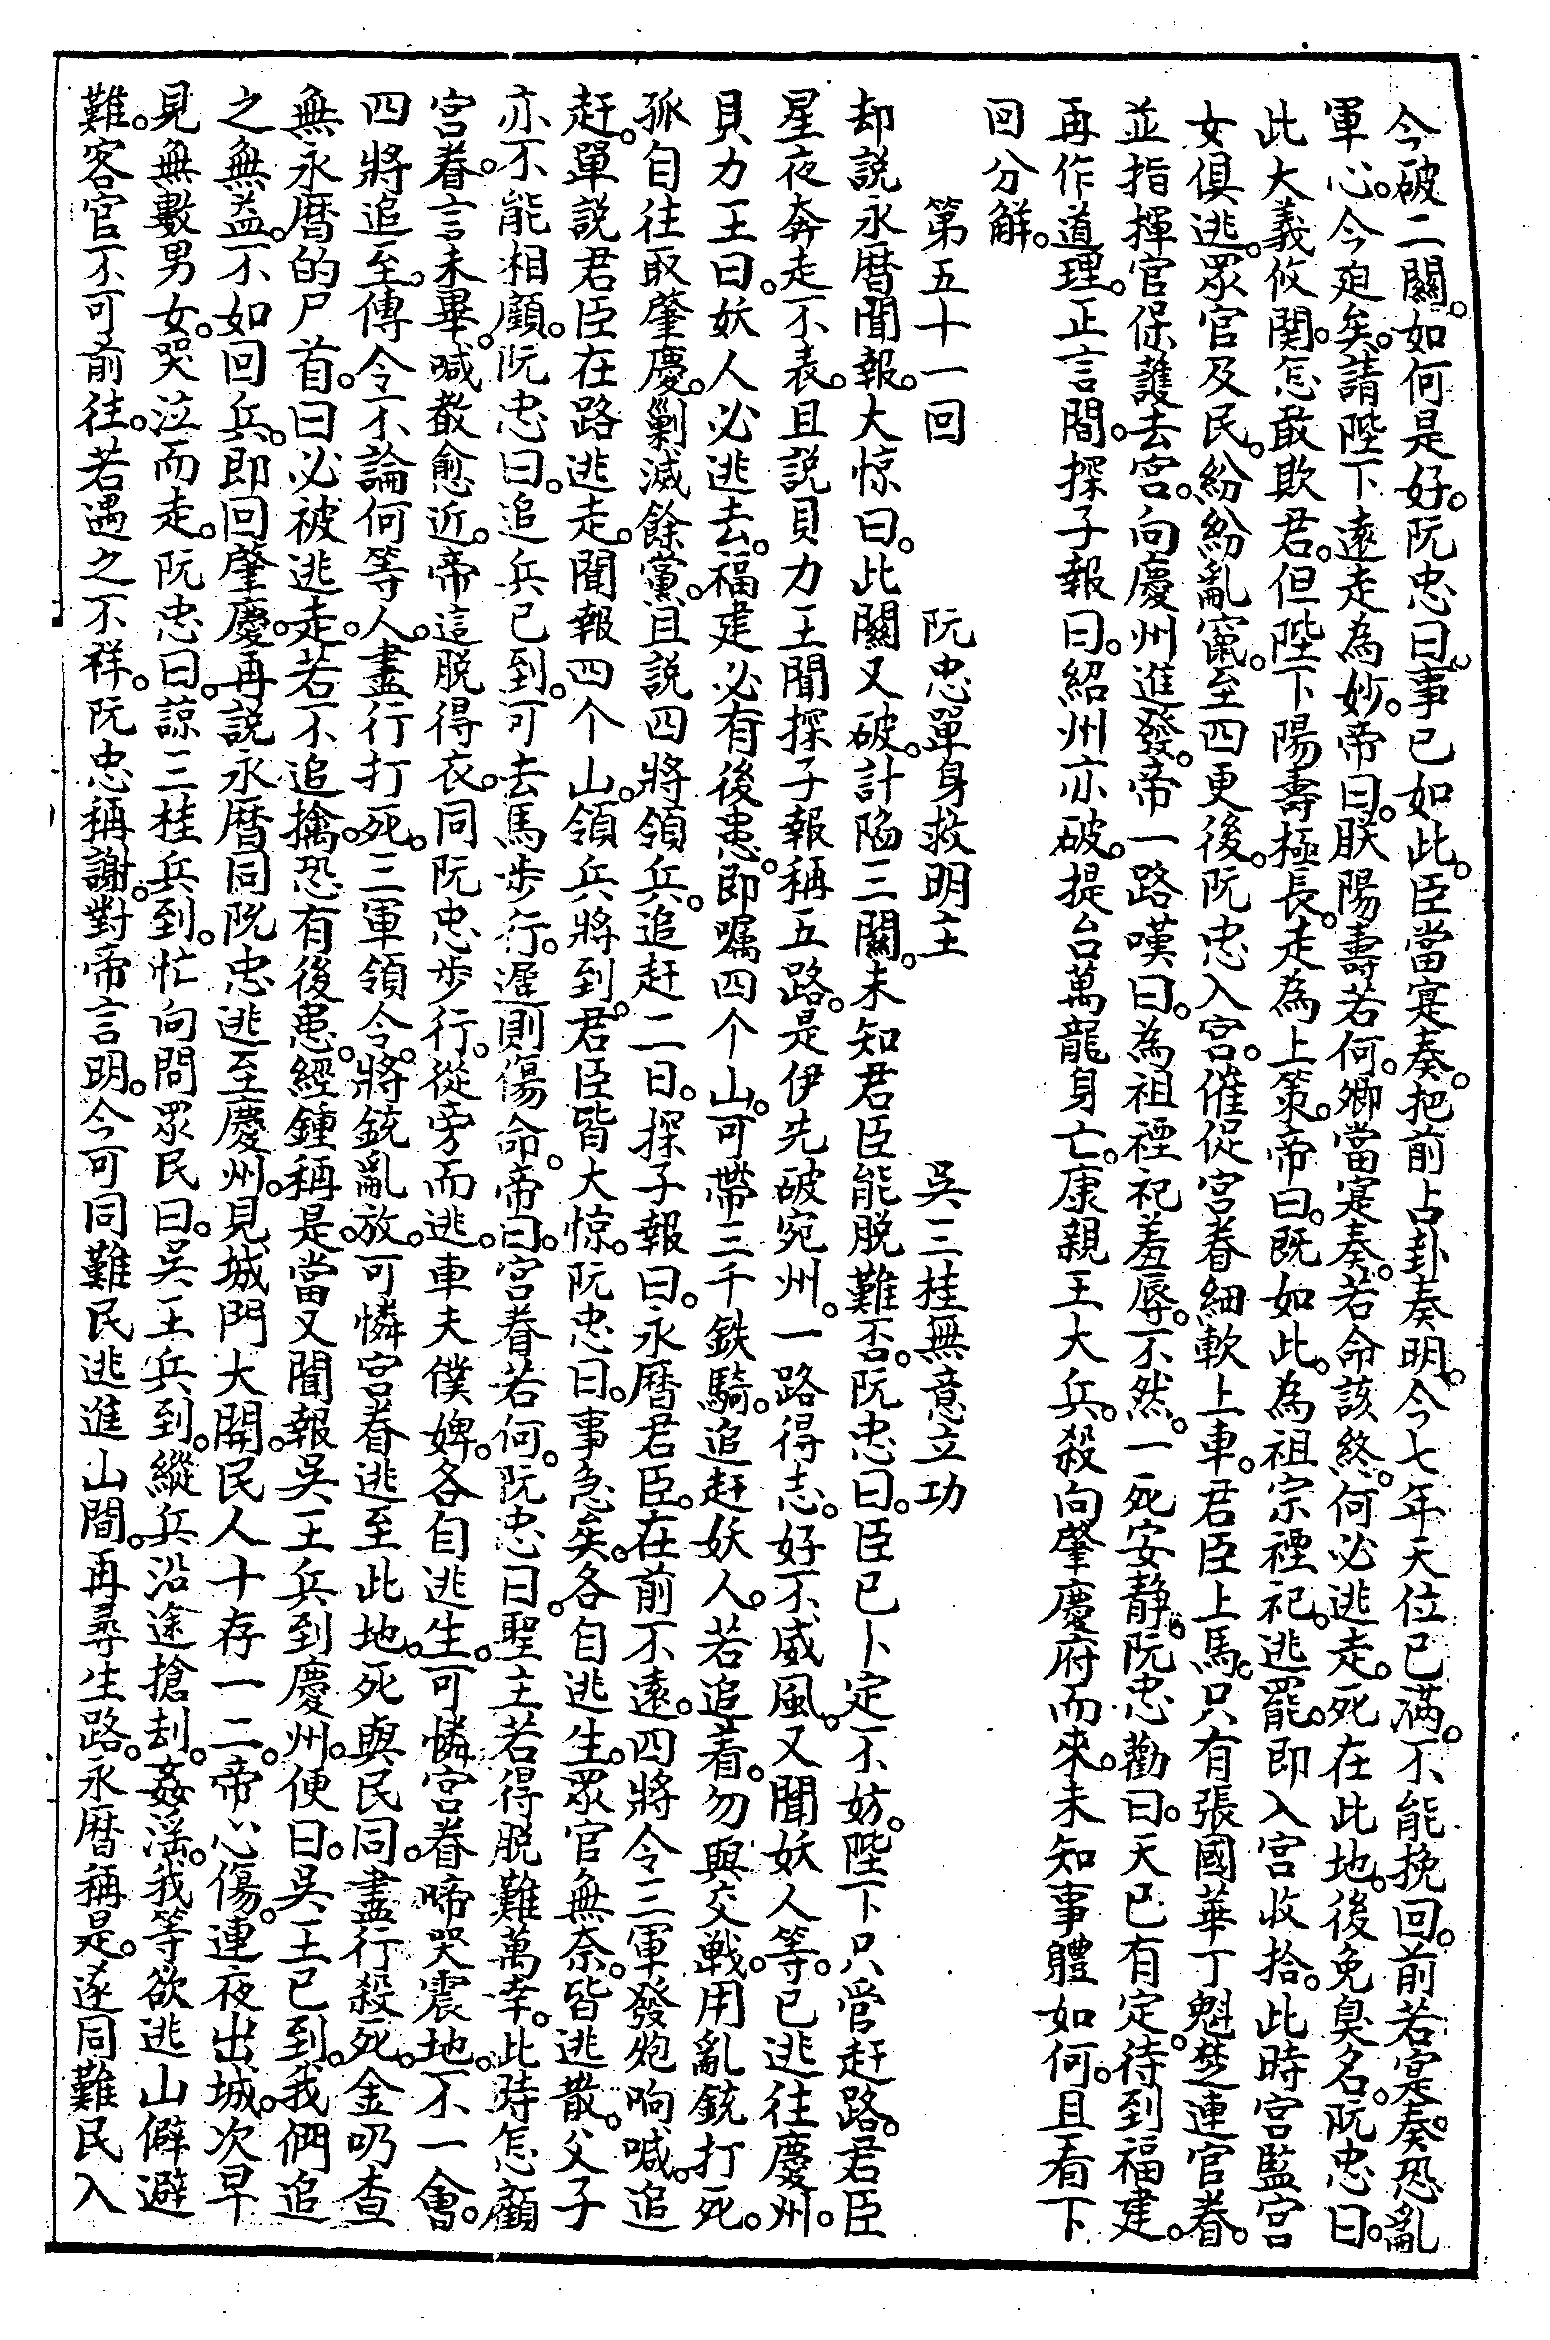 今破二關。如何是好。阮忠曰。事已如此。臣當寔奏。把前占卦奏明。今七年天位已滿。不能挽回。前若寔奏。恐亂
軍心。今廹矣。請陛下遠走為妙。帝曰。朕陽壽若何。卿當寔奏。若命該終。何必逃走。死在此地。後免臭名。阮忠曰。
此大義攸関。怎敢欺君。但陛下陽壽極長。走為上策。帝曰。既如此。為祖宗禋祀。逃罷。即入宮收拾。此時宮監宮
女俱逃。眾官及民。紛紛亂竄。至四更後。阮忠入宮。催促宮眷細軟上車。君臣上馬。只有張國華丁魁楚連官眷。
並指揮官保護去宮。向慶州進發。帝一路嘆曰。為祖禋祀羞辱。不然。一死安静。阮忠勸曰。天已有定。待到福建。
再作道理。正言間。探子報曰。紹州亦破。提台萬龍身亡。康親王大兵。殺向肇慶府而來。未知事體如何。且看下
回分解。
第五十一回　阮忠單身救明主　吳三桂無意立功
却説永曆聞報。大惊曰。此關又破。計陷三關。未知君臣能脱難否。阮忠曰。臣已卜定不妨。陛下只管赶路。君臣
星夜奔走不表。且説貝力王聞探子報稱五路。是伊先破宛州。一路得志。好不威風。又聞妖人等。已逃往慶州。
貝力王曰。妖人必逃去。福建必有後患。即嘱四个山。可帶三千鉄騎。追赶妖人。若追着。勿與交戦。用亂銃打死。
孤自往取肇慶。剿滅餘黨。且説四將領兵。追赶二日。探子報曰。永曆君臣。在前不遠。四將令三軍發炮响喊。追
赶。單説君臣在路逃走。聞報四个山。領兵將到。君臣皆大惊。阮忠曰。事急矣。各自逃生。眾官無奈。皆逃散。父子
亦不能相顧。阮忠曰。追兵已到。可去馬步行。遲則傷命。帝曰。宮眷若何。阮忠曰。聖主若得脱難萬幸。此時怎顧
宮眷。言未畢。喊殺愈近。帝這脱得衣。同阮忠步行。從旁而逃。車夫僕婢。各自逃生。可憐宮眷啼哭震地。不一會。
四將追至。傳令不論何等人。盡行打死。三軍領令。將銃亂放。可憐宮眷逃至此地。死與民同。盡行殺死。金叨查
無永曆的尸首。曰必被逃走。若不追擒。恐有後患。經鍾稱是。當又聞報吳王兵到慶州。便曰。吳王已到。我們追
之無益。不如回兵。即回肇慶。再説永曆同阮忠逃至慶州。見城門大開。民人十存一二。帝心傷。連夜出城。次早
見無數男女。哭泣而走。阮忠曰。諒三桂兵到。忙向問眾民曰。吳王兵到。縱兵沿途搶刦。姦淫。我等欲逃山僻避
難。客官不可前往。若遇之不祥。阮忠稱謝。對帝言明。今可同難民逃進山間。再尋生路。永曆稱是。遂同難民入